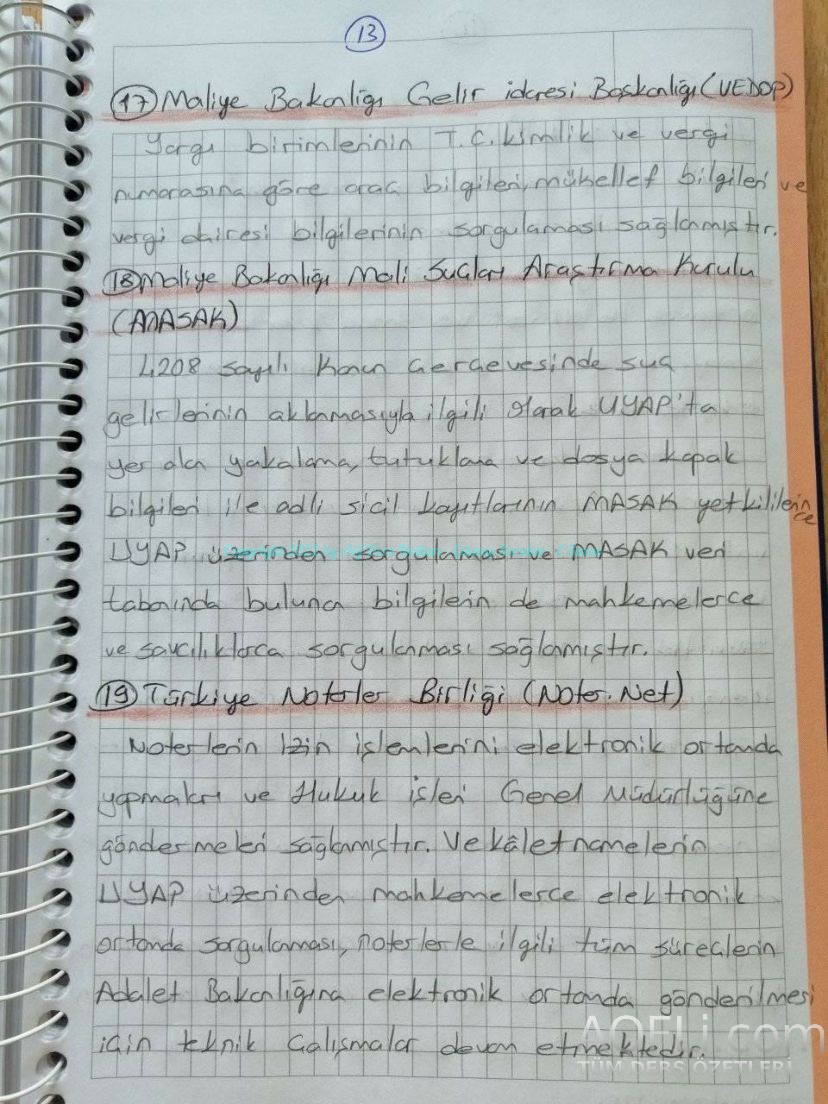 13
17 Maliye Bakanlığı Gelir idaresi Başkanlığı (VEDOP)
Yargı birimlerinin T.C. kimlik ve vergi
numarasına göre araç bilgileri, mükellef bilgileri ve
vergi dairesi bilgilerinin sorgulaması sağlanmıştır.
18 Maliye Bakanlığı Mali Suçları Araştırma Kurulu
(MASAK)
4208 sayılı Kanun Çerçevesinde suç
gelirlerinin aklanmasıyla ilgili olarak UYAP'ta
yer alan yakalama, tutuklama ve dosya kapak
bilgileri ile adli sicil kayıtlarının MASAK yetkililerince
UYAP üzerinden sorgulaması ve MASAK veri
tabanında bulunan bilgilerin de mahkemelerce
ve savcılıklarca sorgulanması sağlanmıştır.
19 Türkiye Noterler Birliği (Noter.Net)
Noterlerin izin işlemlerini elektronik ortamda
yapmaları ve Hukuk işleri Genel Müdürlüğüne
göndermeleri sağlanmıştır. Vekâletnamelerin
UYAP üzerinden mahkemelerce elektronik
ortamda sorgulaması, noterlerle ilgili tüm süreçlerin
Adalet Bakanlığına elektronik ortamda gönderilmesi
için teknik çalışmalar devam etmektedir.
AOFLi.com
TÜM DERS ÖZETLERİ